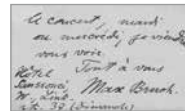 le concert, mardi
ou mercredi, je viendrai
vous voir.
Tout à vous
Hôtel
Max Bruch.
(Dimanche)